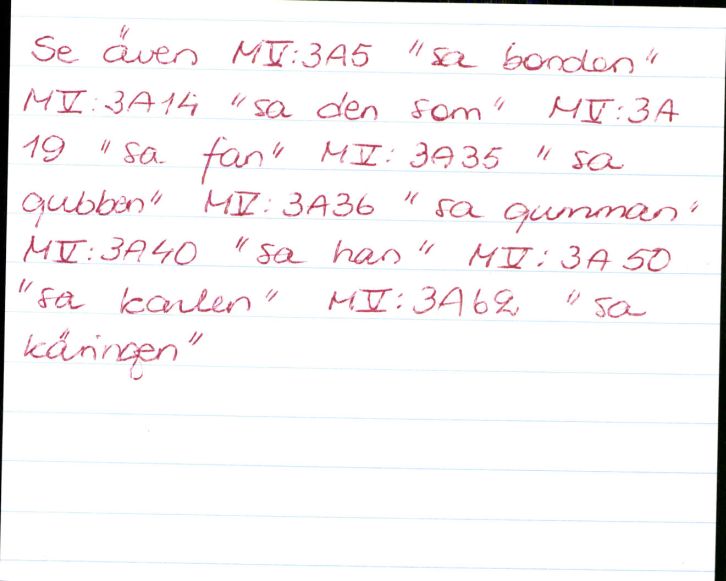 Se även MV:3A5 "sa bonden"
MV:3A14 "sa den som" MV:3A
19 "sa fan" MV: 3A35 "sa
gubben" MV: 3A36 "sa gumman"
MV:3A40 "sa han" MV: 3A 50
"sa karlen" MV:3A62 "sa
käringen"